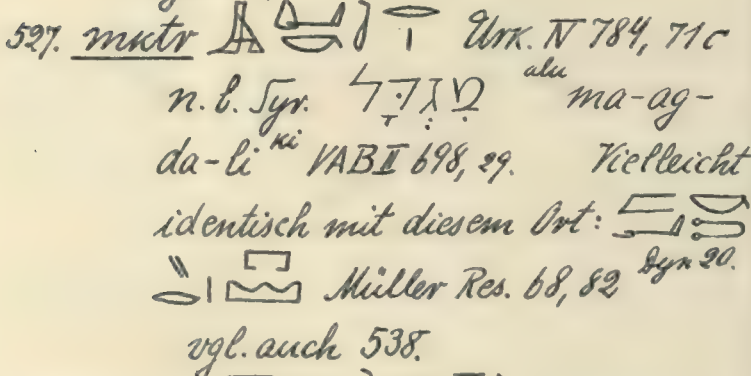 527. mktr Urk. IV 784, 71c
n. l. Syr. מִגְדָּל alu ma-ag-
da-li ki VAB II 698, 29. Vielleicht
identisch mit diesem Ort:
Dyn 20.
Müller Res. 68, 82
vgl. auch 538.